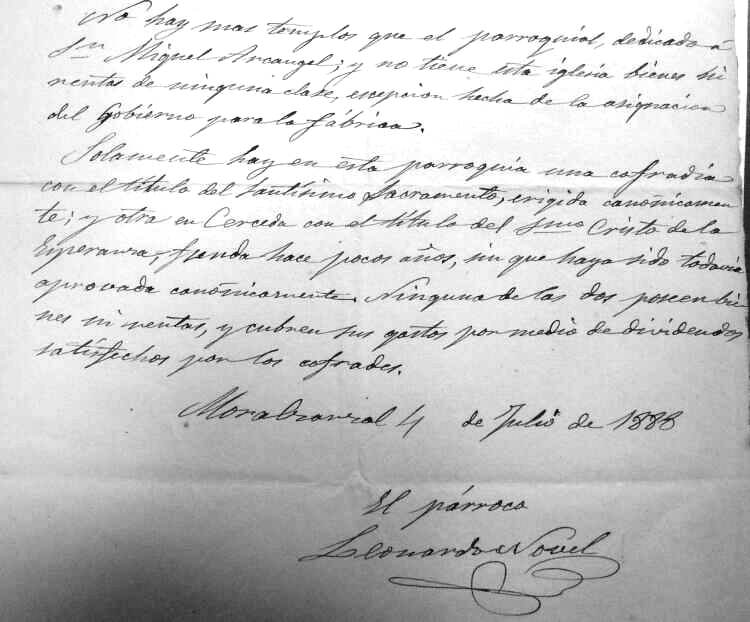 No hay mas templos que el parroquial, dedicado á
Sn Miguel Arcangel; y no tiene esta iglesia bienes ni
rentas de ninguna clase, escepcion hecha de la asignacion
del Gobierno para la fábrica.
Solamente hay en esta parroquia una cofradia
con el titulo del Santísimo Sacramento, erigida canónicamen
te; y otra en Cerceda con el titulo del Smo Cristo de la
Esperanza, hace pocos años, sin que haya sido todavia
aprovada canónicamente. Ninguna de las dos poseen bie
nes ni rentas, y cubren sus gastos por medio de dividendos
satisfechos por los cofrades.
Moralzarzal 4 de Julio de 1888
El párroco
Leonardo Novel